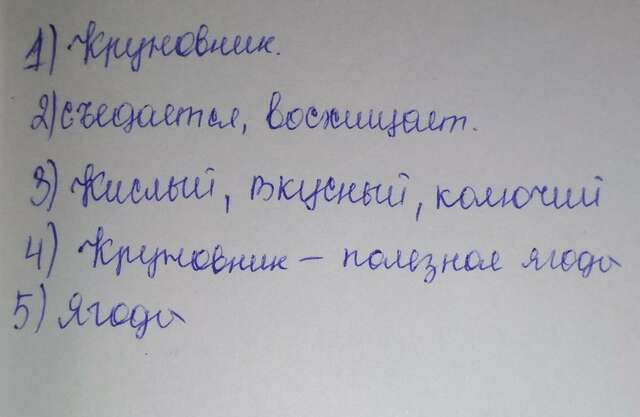 1) Крыжовник.
2) съедается, восхищает.
3) Кислый, вкусный, колючий
4) Крыжовник – полезная ягода
5) Ягода